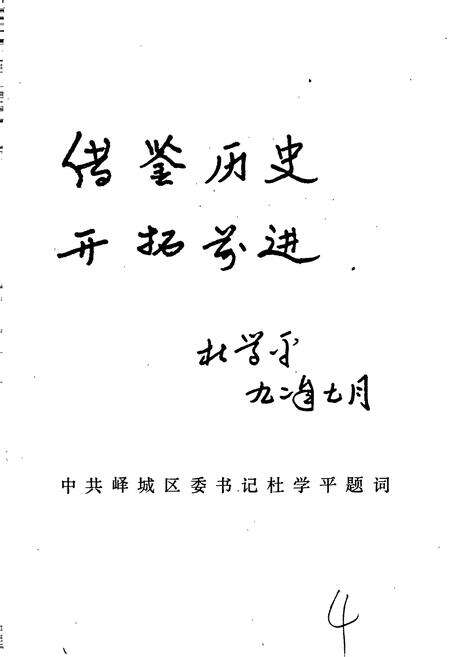 借鉴历史
开拓前进
杜学平
九二年七月
中共峄城区委书记杜学平题词
4